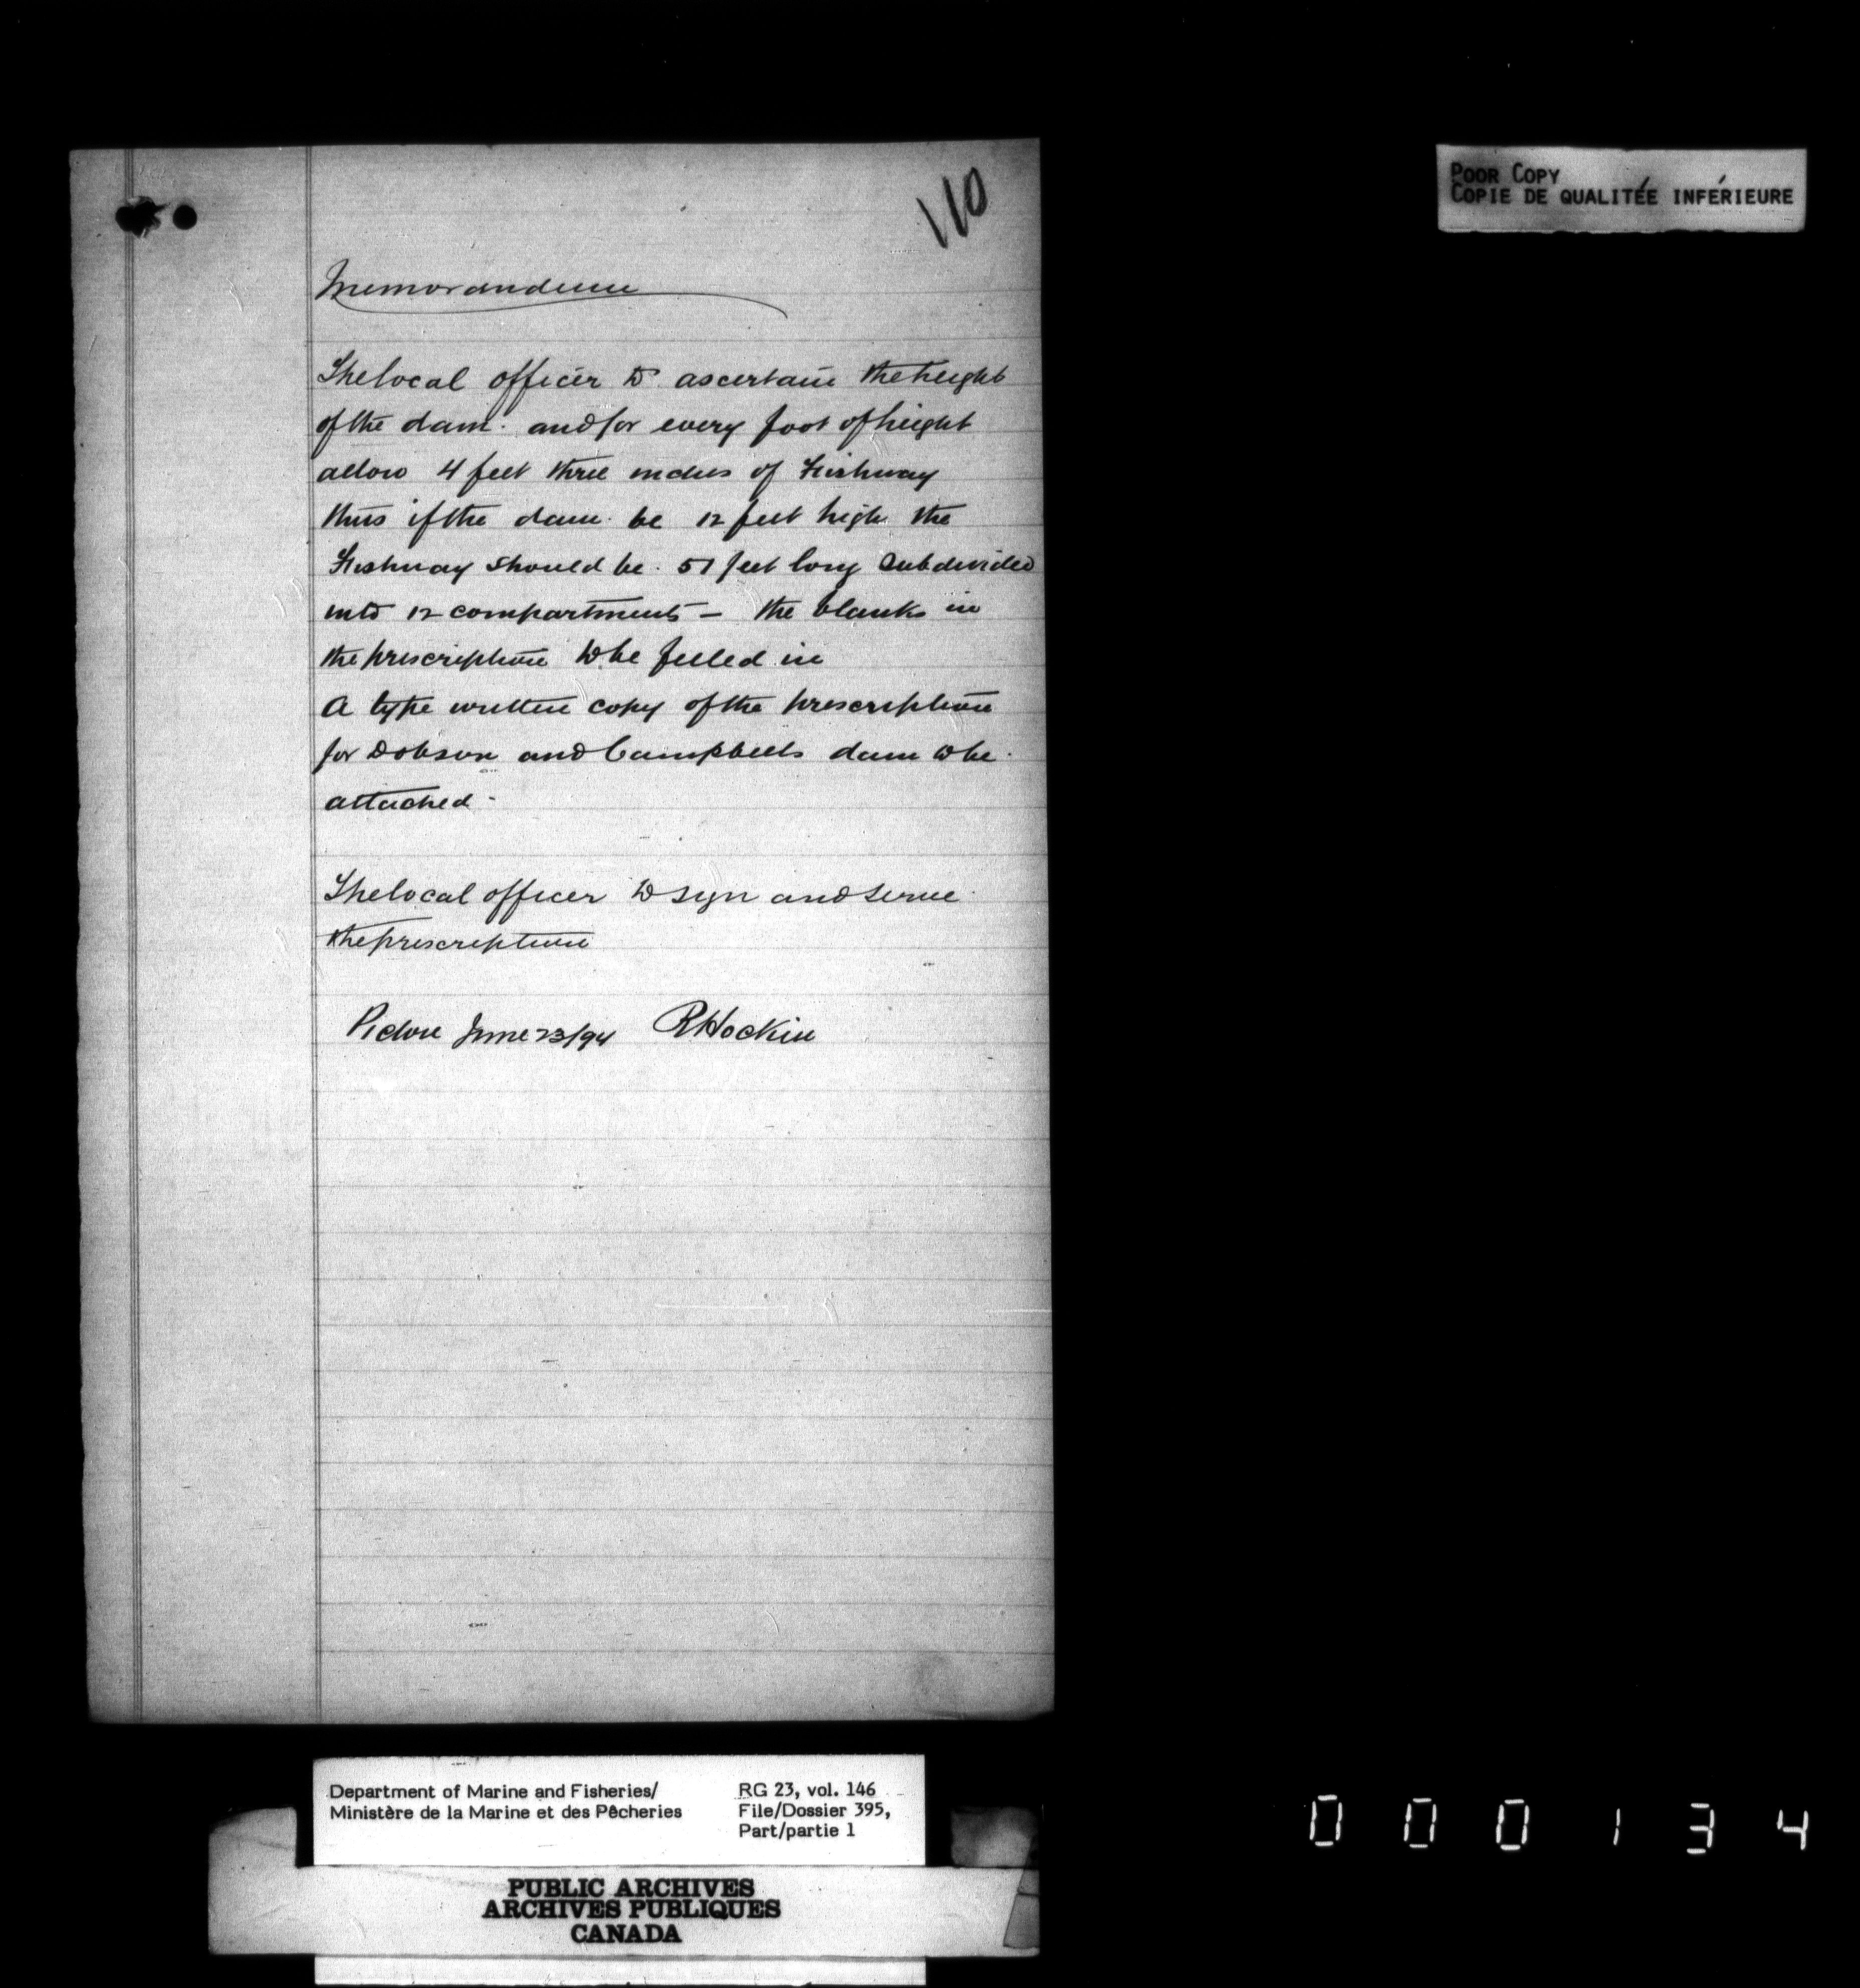 110
Poor Copy
Copie de qualitée inférieure
Memorandum
The local officer to ascertain the height
of the dam. and for every foot of height
allow 4 feet three inches of Fishway
thus if the dam. be 12 feet high the
Fishway should be. 51 feet long subdivided
into 12 compartments – the blanks in
the prescription to be filled in
A type written copy of the prescription
for Dobson and Campbells dam to be.
attached -
The local officer to sign and serve.
the prescription
Pictou June 23/94 RHockin
Department of Marine and Fisheries/ RG 23, vol. 146
Ministère de la Marine et des Pêcheries File/Dossier 395,
Part/partie 1
PUBLIC ARCHIVES
ARCHIVES PUBLIQUES
CANADA
000134